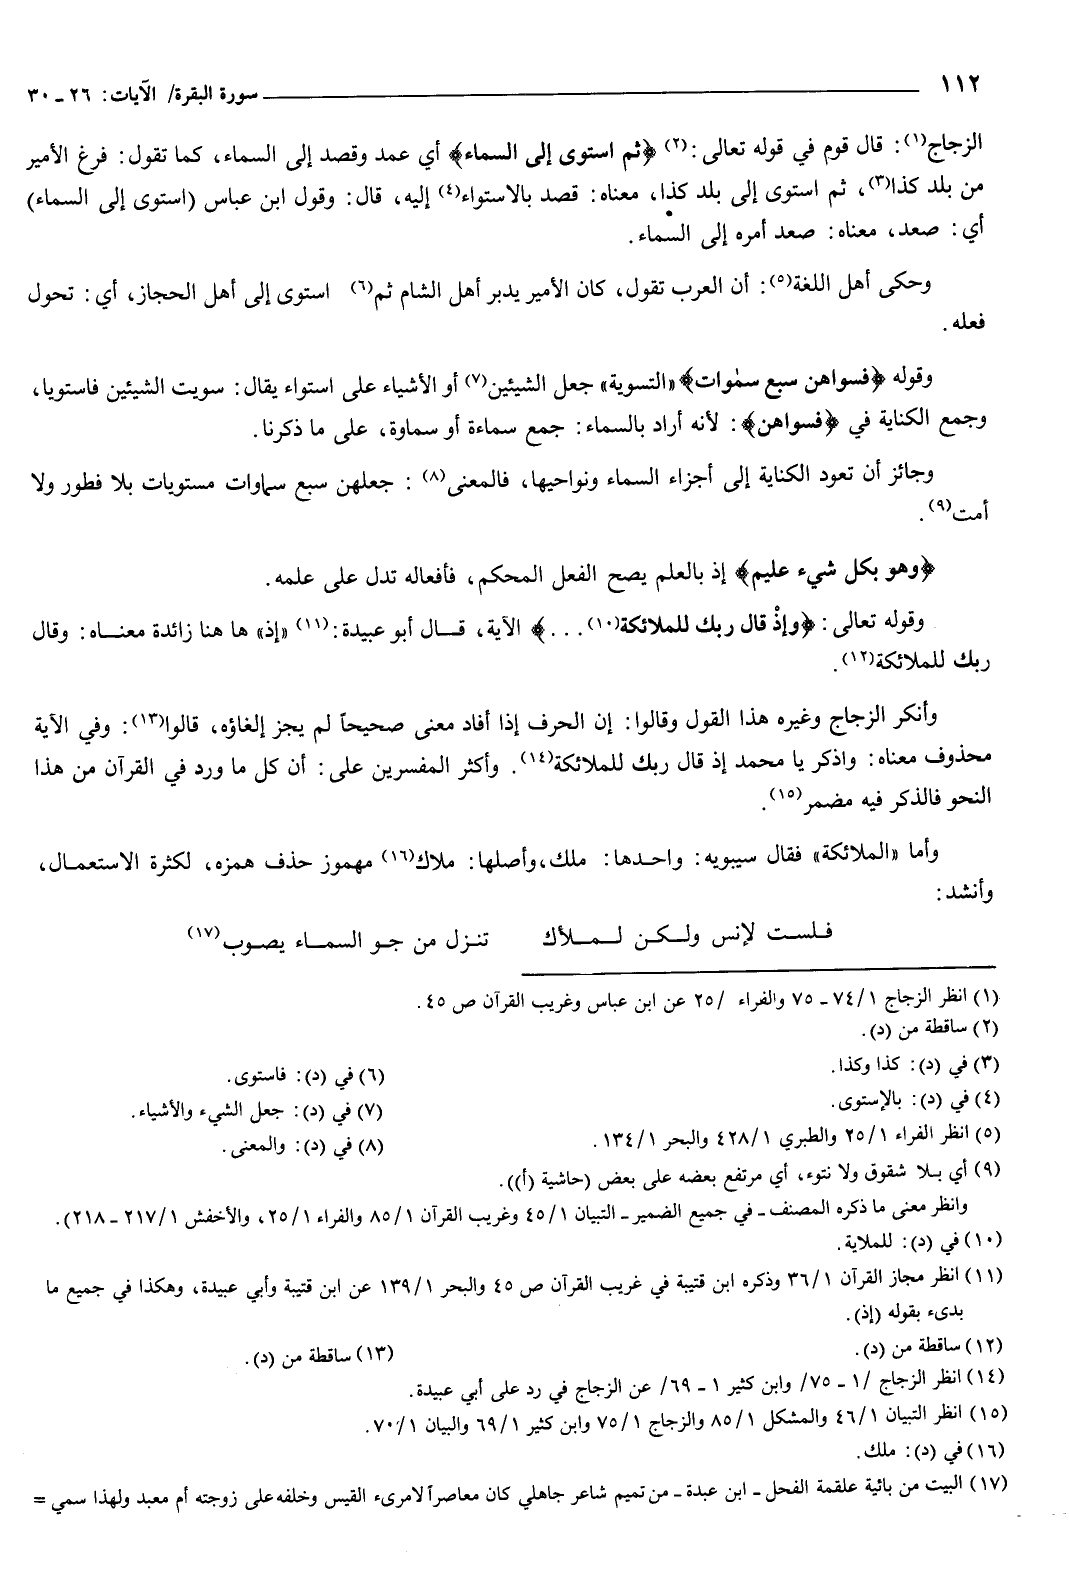 ١١٢ سورة البقرة/ الآيات: ٢٦ ـ ٣٠
الزجاج(١): قال قوم في قوله تعالى:(٢) ﴿ثم استوى إلى السماء﴾ أي عمد وقصد إلى السماء، كما تقول: فرغ الأمير
من بلد كذا(٣)، ثم استوى إلى بلد كذا، معناه: قصد بالاستواء(٤) إليه، قال: وقول ابن عباس (استوى إلى السماء)
أي: صعد، معناه: صعد أمره إلى السماء.
وحكى أهل اللغة(٥): أن العرب تقول، كان الأمير يدبر أهل الشام ثم(٦) استوى إلى أهل الحجاز، أي: تحول
فعله.
وقوله ﴿فسواهن سبع سمٰوات﴾ «التسوية» جعل الشيئين(٧) أو الأشياء على استواء يقال: سويت الشيئين فاستويا،
وجمع الكناية في ﴿فسواهن﴾: لأنه أراد بالسماء: جمع سماءة أو سماوة، على ما ذكرنا.
وجائز أن تعود الكناية إلى أجزاء السماء ونواحيها، فالمعنى(٨) : جعلهن سبع سماوات مستويات بلا فطور ولا
أمت(٩).
﴿وهو بكل شيء عليم﴾ إذ بالعلم يصح الفعل المحكم، فأفعاله تدل على علمه.
وقوله تعالى: ﴿وإذْ قال ربك للملائكة(١٠)...﴾ الآية، قـال أبو عبيدة:(١١) «إذ» ها هنا زائدة معنـاه: وقال
ربك للملائكة(١٢).
وأنكر الزجاج وغيره هذا القول وقالوا: إن الحرف إذا أفاد معنى صحيحاً لم يجز إلغاؤه، قالوا(١٣): وفي الآية
محذوف معناه: واذكر يا محمد إذ قال ربك للملائكة(١٤). وأكثر المفسرين على: أن كل ما ورد في القرآن من هذا
النحو فالذكر فيه مضمر(١٥).
وأما «الملائكة» فقال سيبويه: واحـدها: ملك،وأصلها: ملاك(١٦) مهموز حذف همزه، لكثرة الاستعمـال،
وأنشد:
فـلسـت لإنس ولـكـن لـمـلأك تنـزل من جـو السمـاء يصـوب(١٧)
(١) انظر الزجاج ٧٤/١ ـ ٧٥ والفراء /٢٥ عن ابن عباس وغريب القرآن ص ٤٥.
(٢) ساقطة من (د).
(٣) في (د): كذا وكذا. (٦) في (د): فاستوى.
(٤) في (د): بالإستوى. (٧) في (د): جعل الشيء والأشياء.
(٥) انظر الفراء ٢٥/١ والطبري ٤٢٨/١ والبحر ١٣٤/١. (٨) في (د): والمعنى.
(٩) أي بـلا شقوق ولا نتوء، أي مرتفع بعضه على بعض (حاشية (أ)).
وانظر معنى ما ذكره المصنف ـ في جميع الضمير ـ التبيان ٤٥/١ وغريب القرآن ٨٥/١ والفراء ٢٥/١، والأخفش ٢١٧/١ ـ ٢١٨).
(١٠) في (د): للملاية.
(١١) انظر مجاز القرآن ٣٦/١ وذكره ابن قتيبة في غريب القرآن ص ٤٥ والبحر ١٣٩/١ عن ابن قتيبة وأبي عبيدة، وهكذا في جميع ما
بدىء بقوله (إذ).
(١٢) ساقطة من (د). (١٣) ساقطة من (د).
(١٤) انظر الزجاج /١ ـ ٧٥/ وابن كثير ١ ـ ٦٩/ عن الزجاج في رد على أبي عبيدة.
(١٥) انظر التبيان ٤٦/١ والمشكل ٨٥/١ والزجاج ٧٥/١ وابن كثير ٦٩/١ والبيان ٧٠/١.
(١٦) في (د): ملك.
(١٧) البيت من بائية علقمة الفحل ـ ابن عبدة ـ من تميم شاعر جاهلي كان معاصراً لامرىء القيس وخلفه على زوجته أم معبد ولهذا سمي =